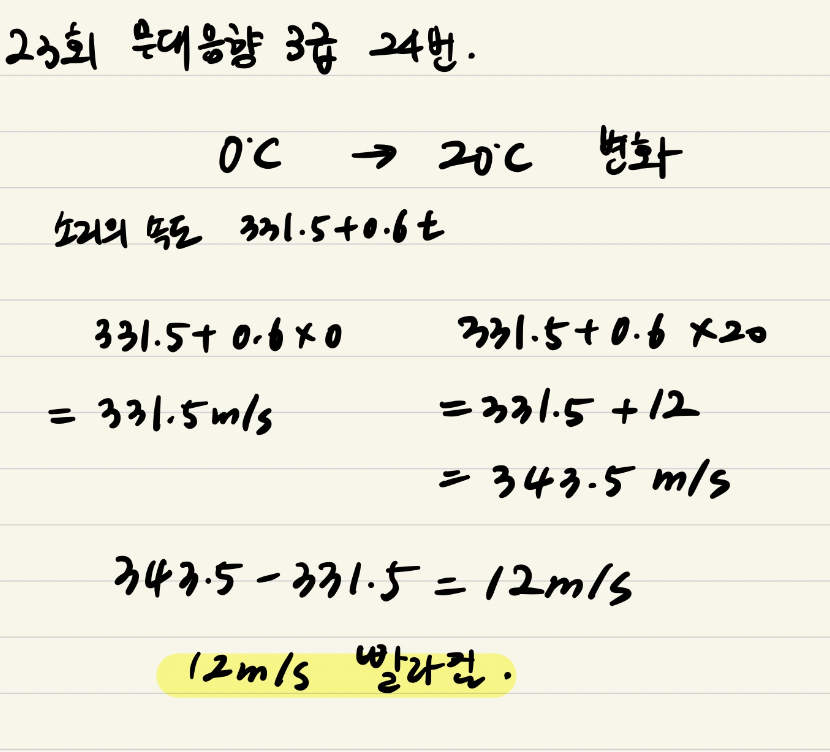 23회 무대음향 3급 24번.
0°C → 20°C 변화
소리의 속도 331.5+0.6t
331.5+0.6×0 331.5+0.6×20
= 331.5m/s =331.5+12
= 343.5 m/s
343.5-331.5=12m/s
12m/s 빨라짐.